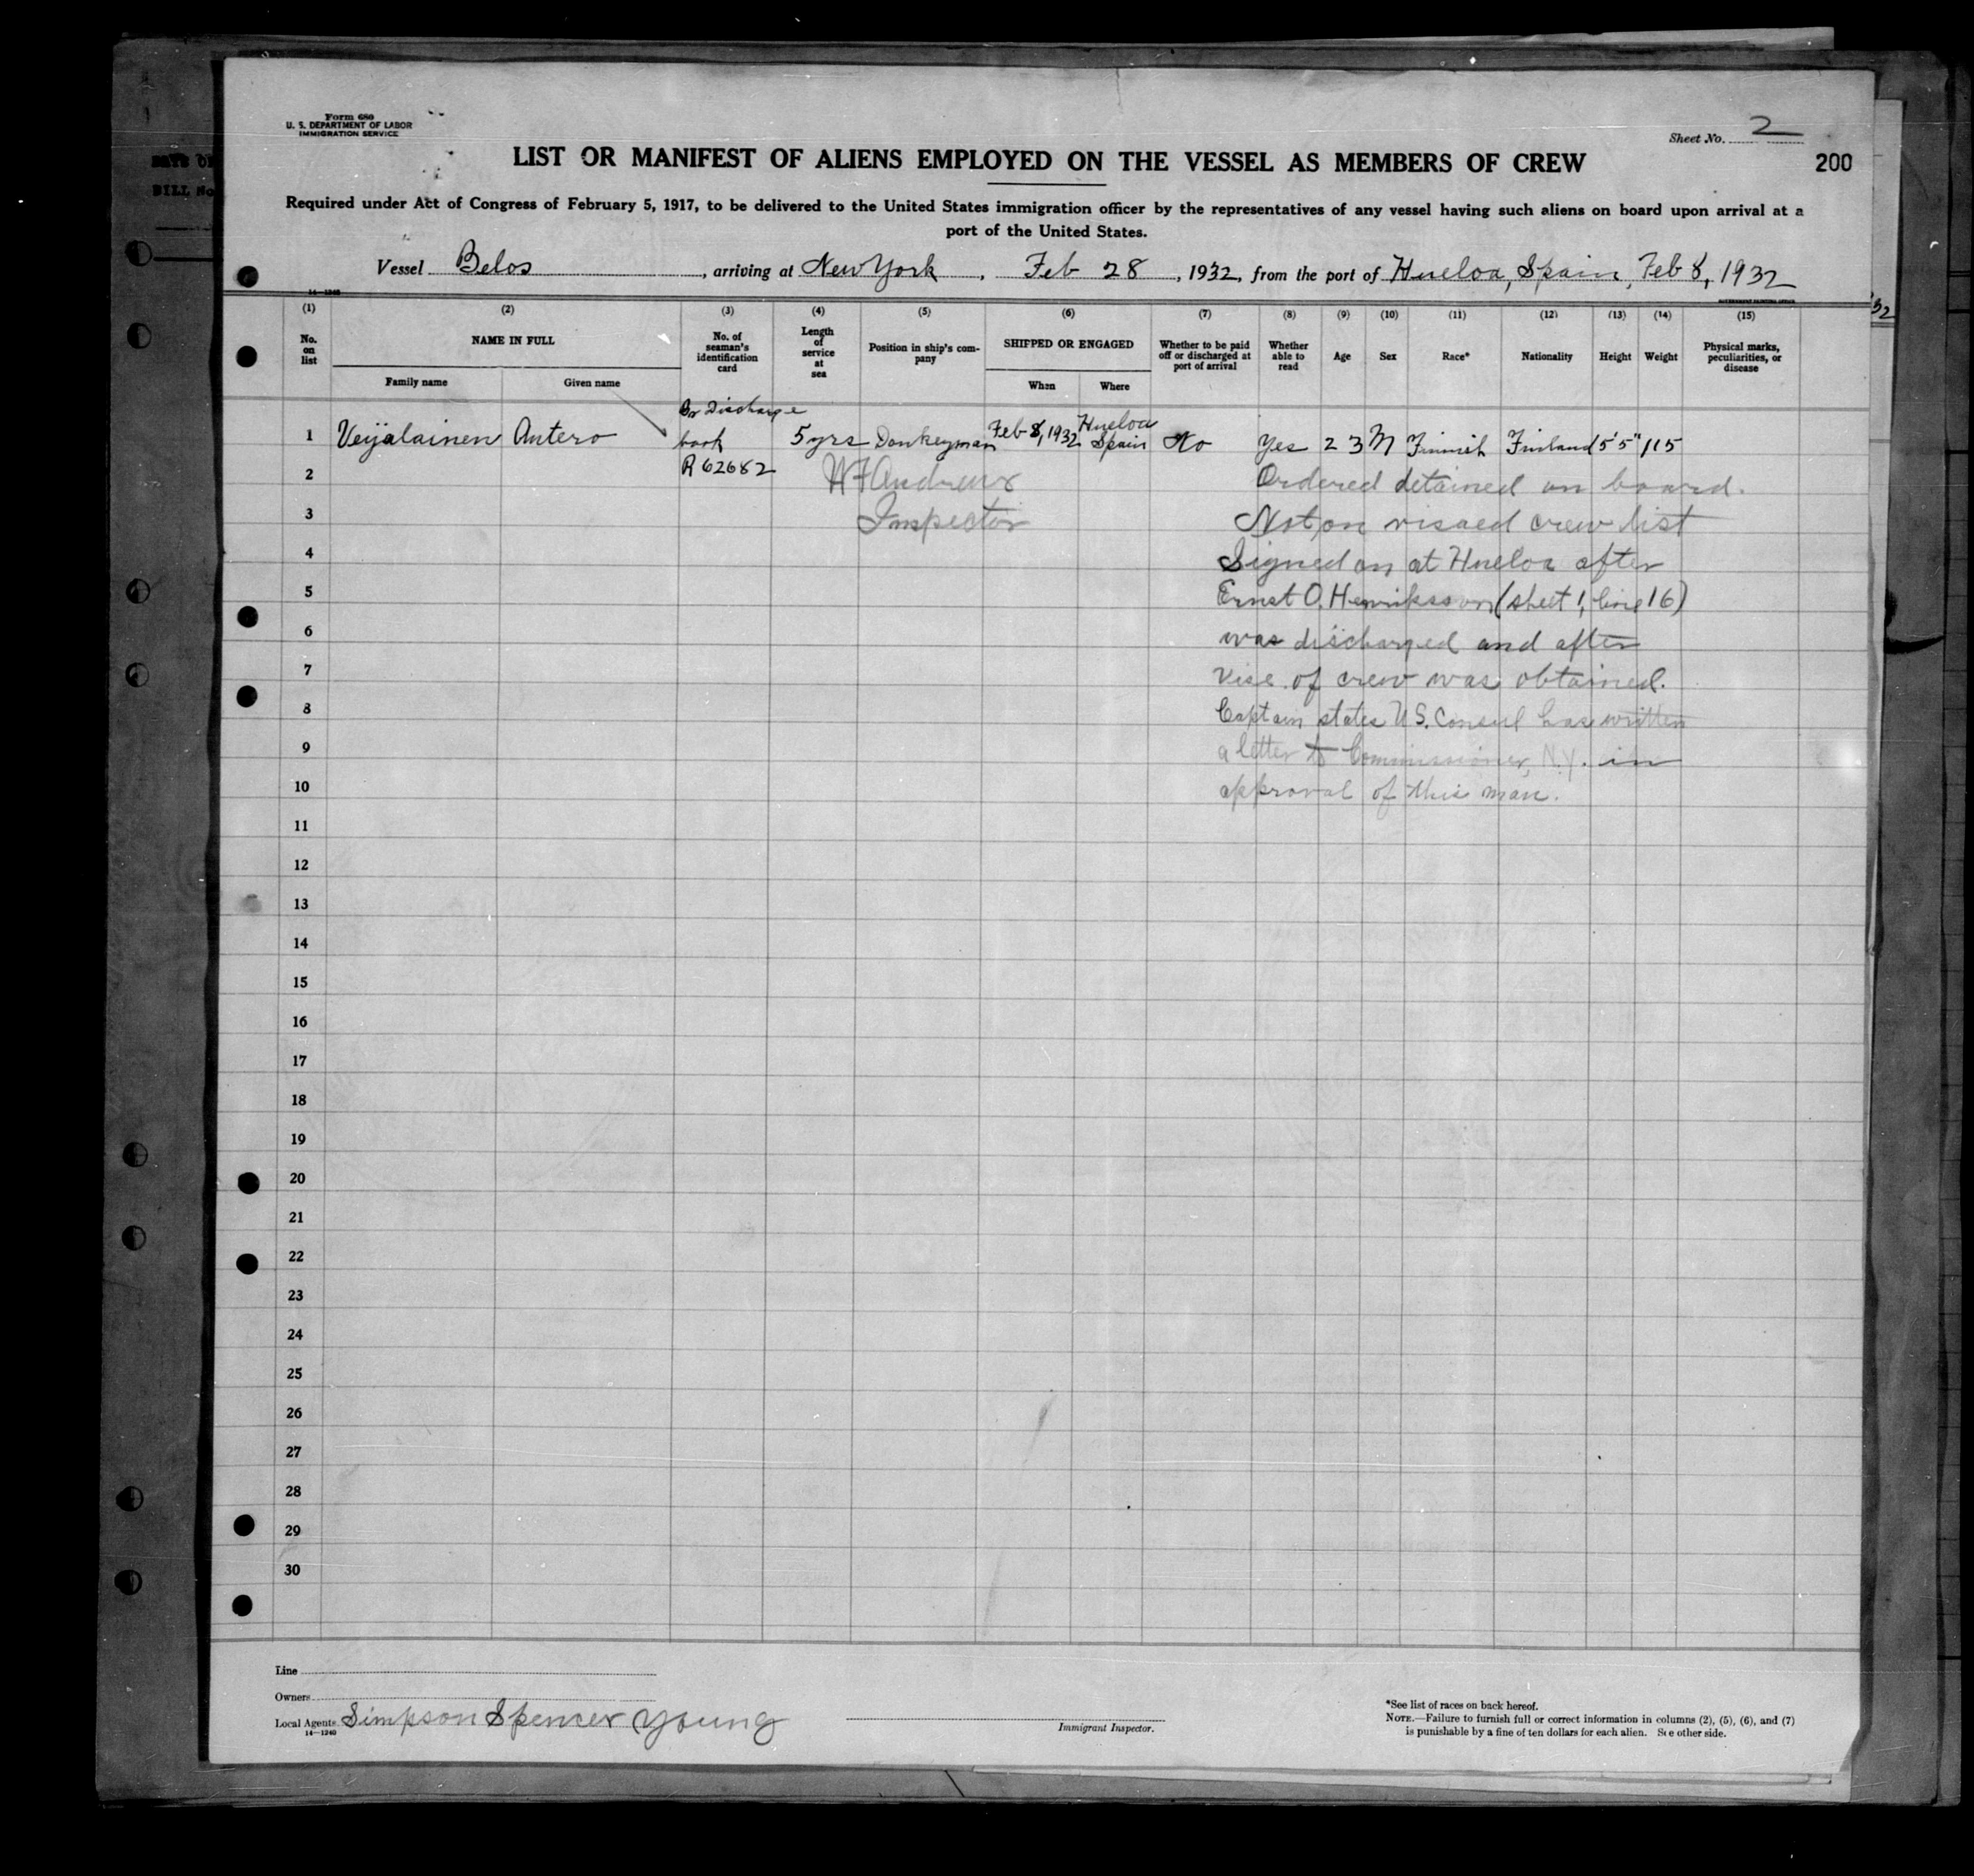 Form 680
U. S. DEPARTMENT OF LABOR
IMMIGRATION SERVICE
Sheet No. 2
LIST OR MANIFEST OF ALIENS EMPLOYED ON THE VESSEL AS MEMBERS OF CREW
200
Required under Act of Congress of February 5, 1917, to be delivered to the United States immigration officer by the representatives of any vessel having such aliens on board upon arrival at a
port of the United States.
Vessel Belos, arriving at New York, Feb 28, 1932, from the port of Huelva, Spain, Feb 8, 1932
14—1240
GOVERNMENT PRINTING OFFICE
(1) (2) (3) (4) (5) (6) (7) (8) (9) (10) (11) (12) (13) (14) (15)
No. on list
NAME IN FULL
Family name Given name
No. of seaman's identification card
Length of service at sea
Position in ship's company
SHIPPED OR ENGAGED
When Where
Whether to be paid off or discharged at port of arrival
Whether able to read
Age
Sex
Race*
Nationality
Height
Weight
Physical marks, peculiarities, or disease
Br Discharge
1 Veijalainen Antero book 5 yrs Donkeyman Feb 8, 1932 Huelva Spain No Yes 23 M Finnish Finland 5'5" 115
R 62682
2 W F Andrews Ordered detained on board.
3 Inspector Not on visaed crew list
4 Signed on at Huelva after
5 Ernst O. Henriksson (sheet 1, line 16)
6 was discharged and after
7 vise of crew was obtained.
8 Captain states U.S. Consul has written
9 a letter to Commissioner, N.Y. in
10 approval of this man.
11
12
13
14
15
16
17
18
19
20
21
22
23
24
25
26
27
28
29
30
Line
Owners
Local Agents Simpson Spencer Young
14—1240
Immigrant Inspector.
*See list of races on back hereof.
NOTE.—Failure to furnish full or correct information in columns (2), (5), (6), and (7)
is punishable by a fine of ten dollars for each alien. See other side.